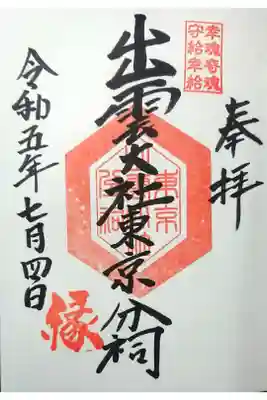 奉拝
幸魂奇魂
守給幸給
出雲大社東京分祠
東京
令和五年七月四日
縁